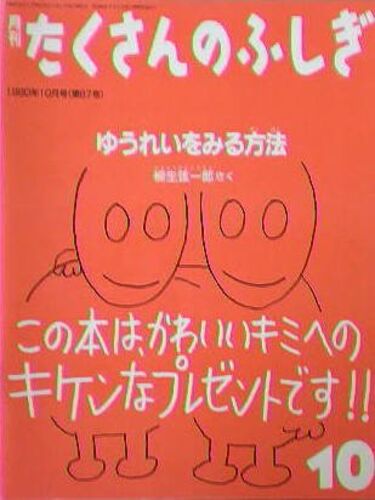 月刊
たくさんのふしぎ
1990年10月号(第67号)
ゆうれいをみる方法
柳生弦一郎 さく
この本は、かわいいキミへの
キケンなプレゼントです!!
10